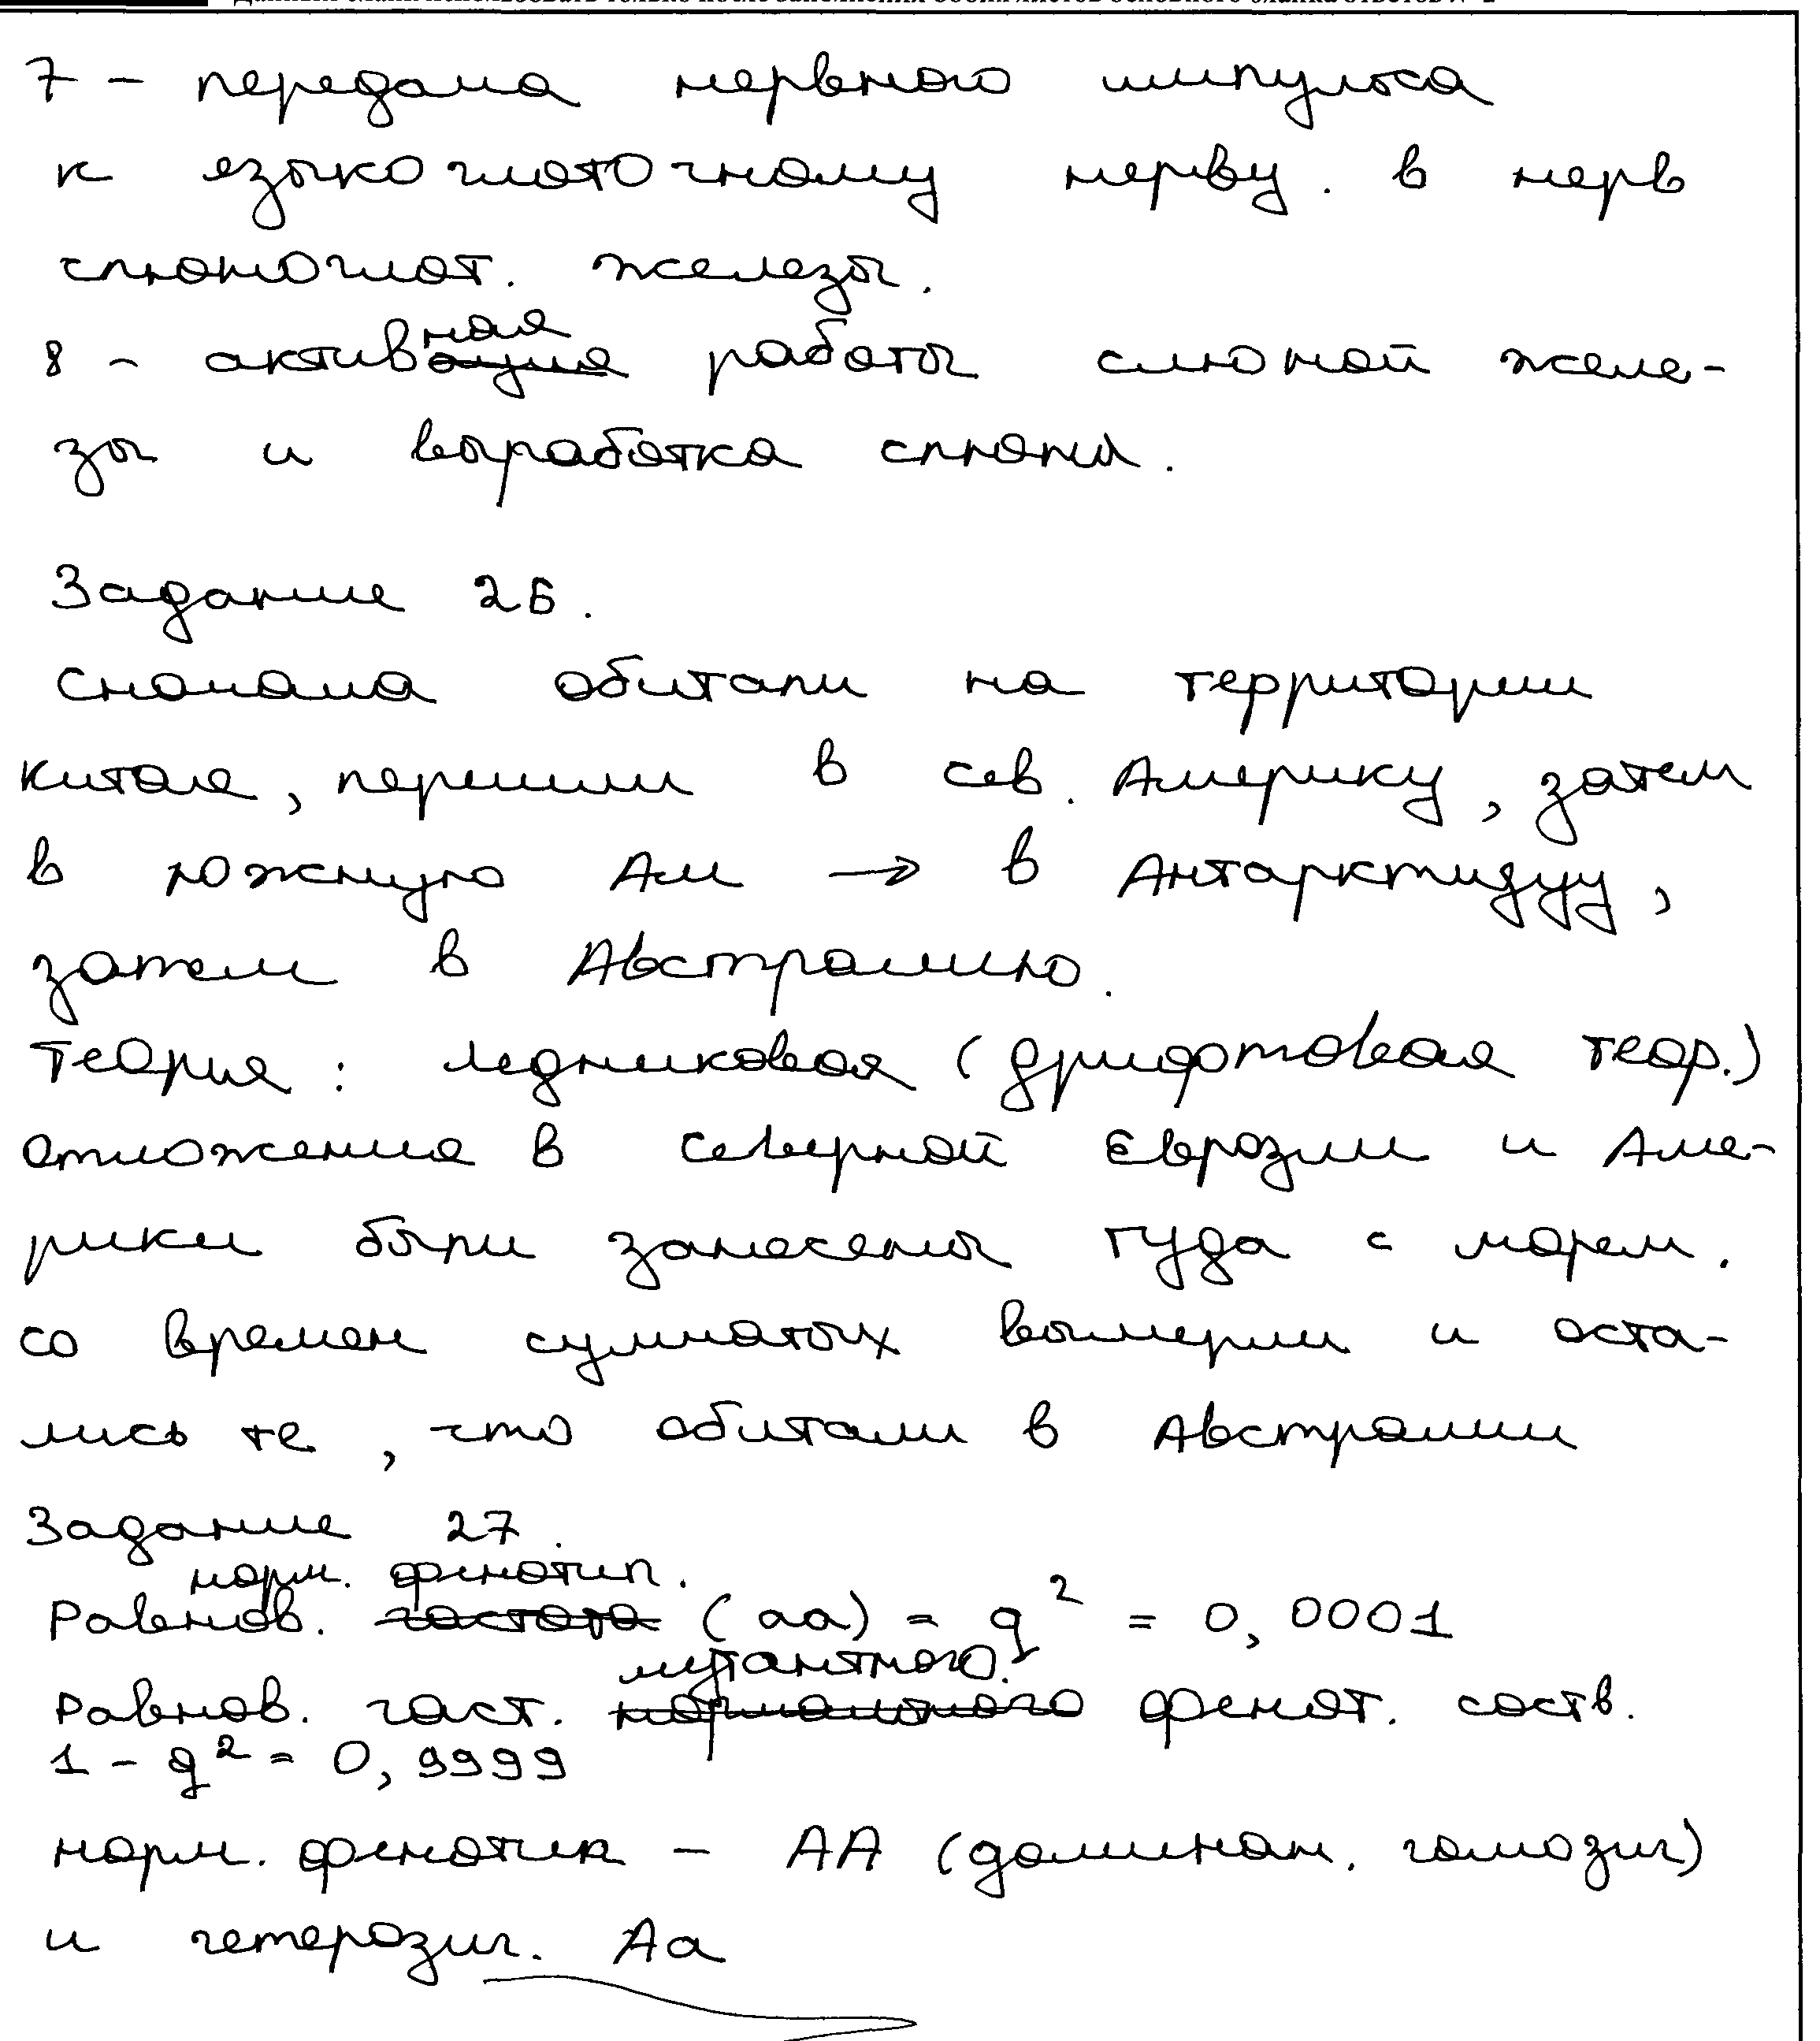 7 - передача нервного импульса
к языкоглоточному нерву. в нерв
слюноглот. железы.
8 - активная работы слюной желе-
зы и выработка слюны.
Задание 26.
Сначала обитали на территории
Китая, перешли в сев. Америку, затем
в южную Ам → в Антарктидуу,
затем в Австралию.
Теория: ледниковая (дрифтовая теор.)
Отложения в северной Евразии и Аме-
рики были занесены туда с морем.
со времен сумчатых вымерли и оста-
лись те, что обитали в Австралии
Задание 27.
норм. фенотип.
Равнов. частота (aa) = q² = 0,0001
мутантного.
Равнов. част. нормального фенот. соств.
1 - q² = 0,9999
норм. фенотип - АА (доминан. гомозиг)
и гетерозиг. Аа